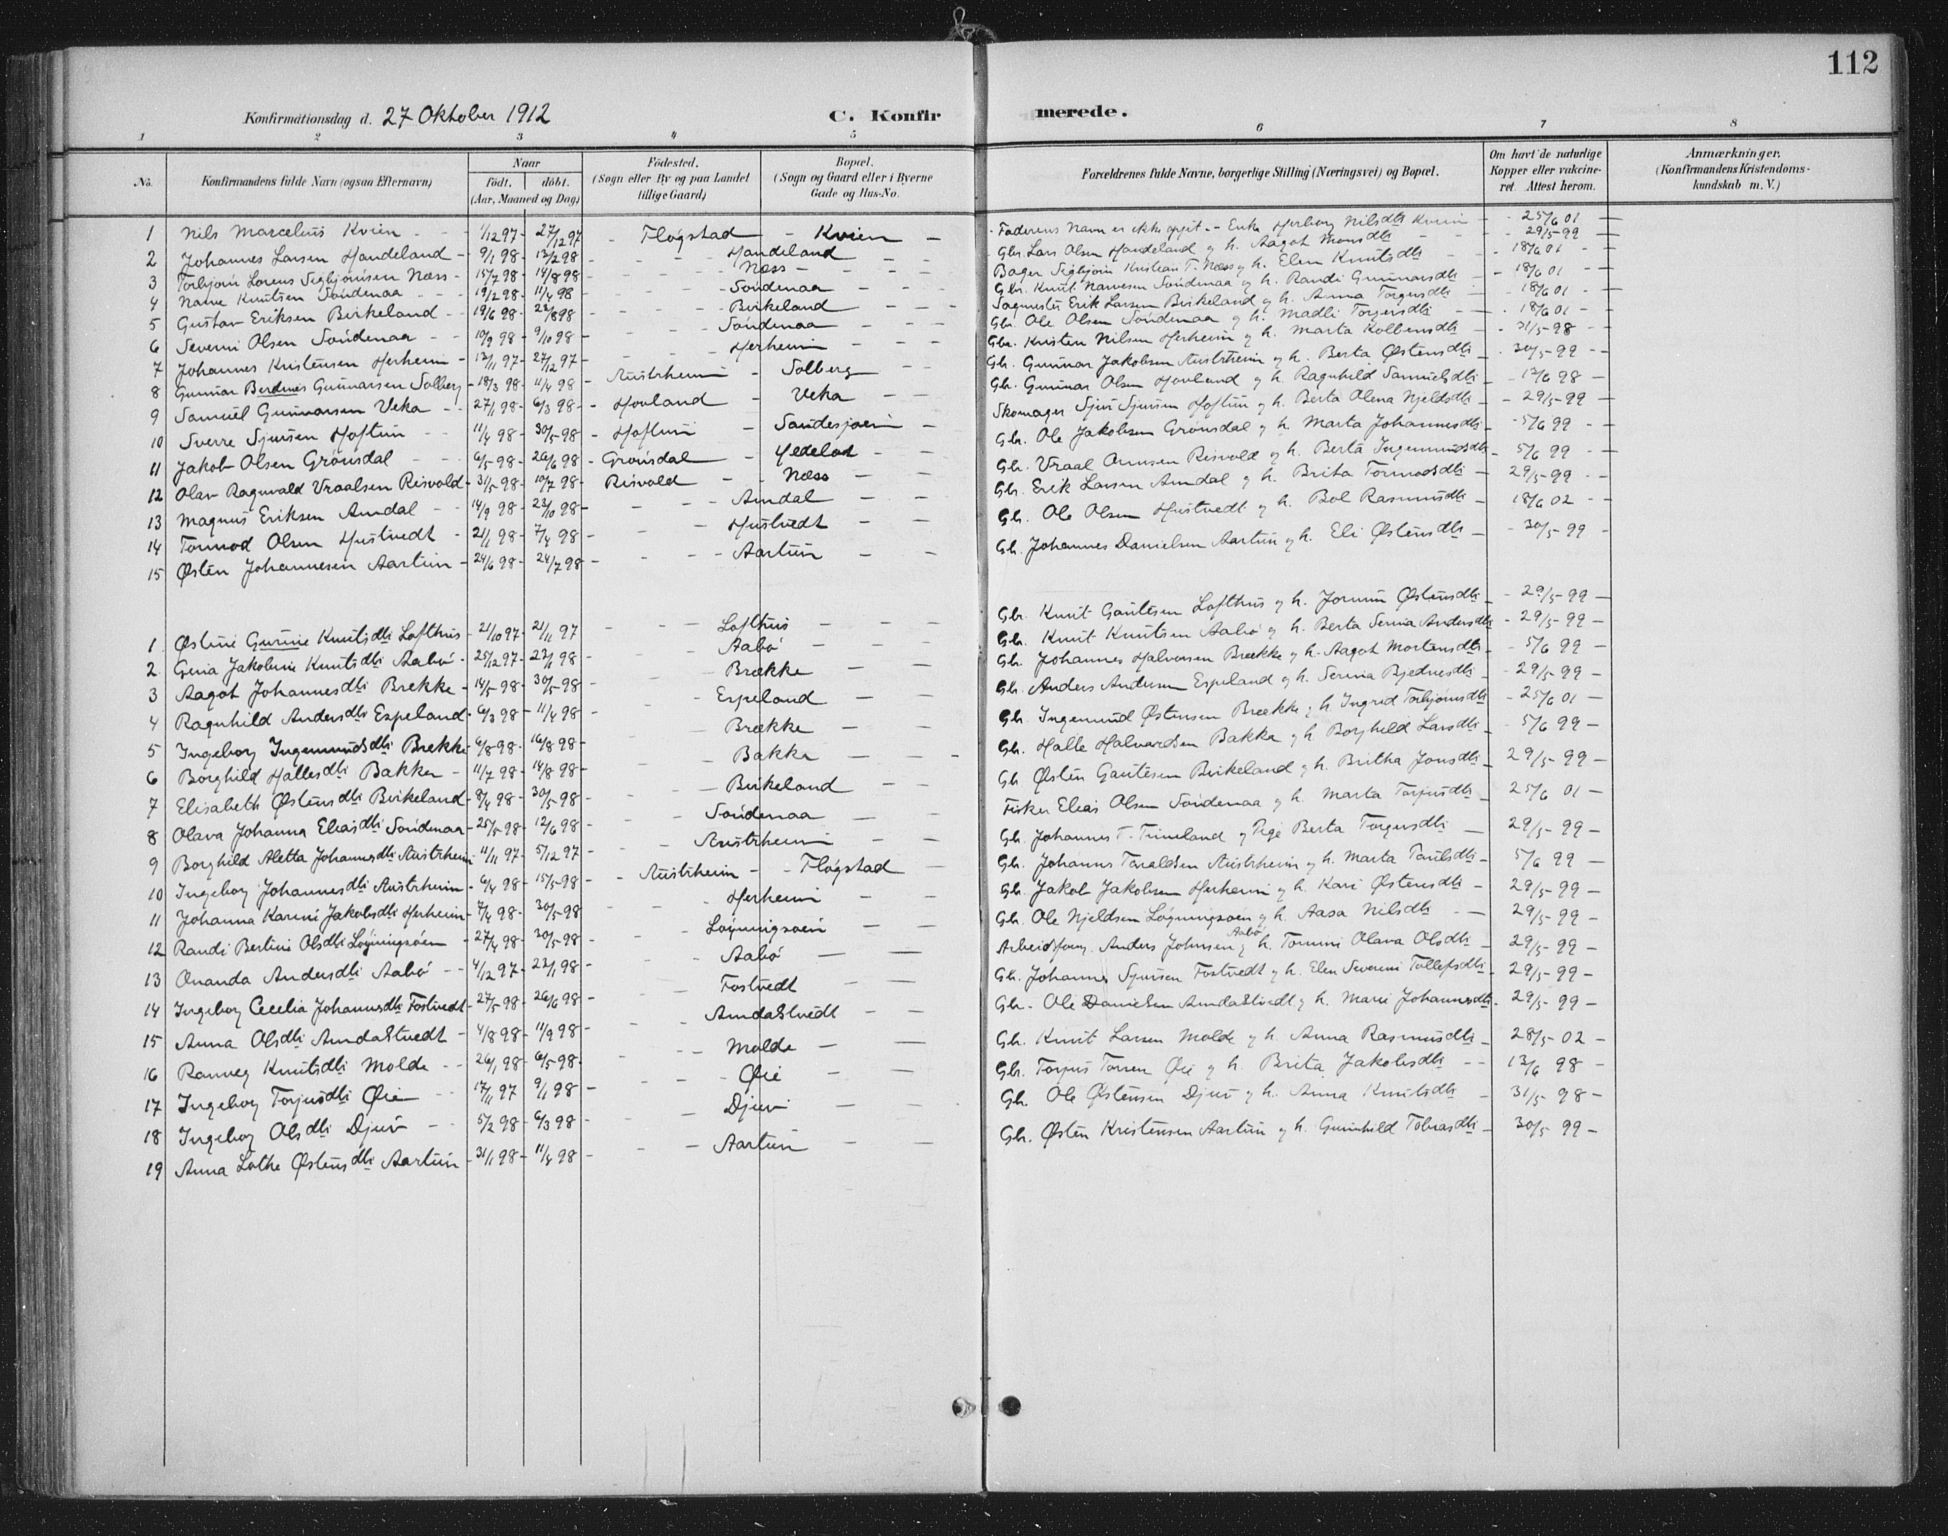 112
Konfirmationsdag d. 27 Oktober 1912 C. Konfirmerede.
1 2 3 4 5 6 7 8
No. Konfirmandens fulde Navn (ogsaa Efternavn) Naar födt. döbt. (Aar, Maaned og Dag) Födested. (Sogn eller By og paa Landet tillige Gaard) Bopæl. (Sogn og Gaard eller i Byerne Gade og Hus-No. Forældrenes fulde Navne, borgerlige Stilling (Næringsvei) og Bopæl. Om havt de naturlige Kopper eller vakcineret. Attest herom. Anmærkninger. (Konfirmandens Kristendomskundskab m. V.)
1 Nils Marcelius Kvien - 1/12 97 - 27/12 97 - Fløgstad - Kvien - Faderens Navn er ikke opgit. - Enke Herborg Nilsdtr Kvien - 25/6 01 -
2 Johannes Larsen Handeland - 9/1 98 - 13/2 98 - Handeland - Gbr. Lars Olsen Handeland og h. Aagot Monsdtr - 29/5-99 -
3 Torbjørn Lorens Sigbjørnsen Næss - 15/7 98 - 14/8 98 - Næss - Bager Sigbjørn Kristian T. Næss og h. Elen Knutsdtr - 18/6 01 -
4 Narve Knutsen Söndenaa - 19/2 98 - 11/4 98 - Söndenaa - Gbr. Knut Narvesen Söndenaa og h. Randi Gunnarsdtr - 18/6 01 -
5 Gustav Eriksen Birkeland - 19/6 98 - 22/8 98 - Birkeland - Sagmester Erik Larsen Birkeland og h. Anna Torgersdtr - 18/6 01 -
6 Severin Olsen Söndenaa - 10/9 98 - 9/10 98 - Söndenaa - Gbr. Ole Olsen Söndenaa og h. Madli Torgersdtr - 18/6 01 -
7 Johannes Kristensen Herheim - 12/11 97 - 27/12 97 - Herheim - Gbr. Kristen Nilsen Herheim og h. Marta Kolbensdtr - 31/5-98 -
8 Gunnar Berdines Gunnarsen Solberg - 18/3 98 - 11/4 98 - Austrheim - Solberg - Gbr. Gunnar Jakobsen Austrheim og h. Berta Østensdtr - 30/5-99 -
9 Samuel Gunnarsen Veka - 27/1 98 - 6/3 98 - Hovland - Veka - Gbr. Gunnar Olsen Hovland og h. Ragnhild Samuelsdtr - 12/6 98 -
10 Sverre Sjursen Hoftun - 11/4 98 - 30/5-98 - Hoftun - Sandesjoen - Skomager Sjur Sjursen Hoftun og h. Berta Olena Njeldsdtr - 29/5-99 -
11 Jakob Olsen Grønsdal - 6/5-98 - 26/6 98 - Grønsdal - Gbr. Ole Jakobsen Grønsdal og h. Marta Johannesdtr - 5/6 99 -
12 Olav Ragnvald Vraalsen Risvold - 31/5-98 - 10/7 98 - Risvold - Næss - Gbr. Vraal Ormsen Risvold og h. Berta Ingemundsdtr - 5/6 99 -
13 Magnus Eriksen Amdal - 14/9 98 - 23/10 98 - Amdal - Gbr. Erik Larsen Amdal og h. Brita Tormodsdtr - 29/5-99 -
14 Tormod Olsen Hustvedt - 21/1 98 - 7/4 98 - Hustvedt - Gbr. Ole Olsen Hustvedt og h. Bol Rasmusdtr - 18/6 02 -
15 Østen Johannesen Aartun - 24/6 98 - 24/7 98 - Aartun - Gbr. Johannes Danielsen Aartun og h. Eli Østensdtr - 30/5-99 -
1 Østine Gurine Knutsdtr Lofthus - 21/10 97 - 21/11 97 - Lofthus - Gbr. Knut Gautesen Lofthus og h. Jorunn Østensdtr - 29/5-99 -
2 Gina Jakobine Knutsdtr Aabø - 25/12 97 - 23/1 98 - Aabø - Gbr. Knut Knutsen Aabø og h. Berta Serina Andersdtr - 29/5-99 -
3 Aagot Johannesdtr Brekke - 14/5-98 - 30/5-98 - Brække - Gbr. Johannes Halvorsen Brække og h. Aagot Mortensdtr - 5/6 99 -
4 Ragnhild Andersdtr Espeland - 6/3 98 - 11/4 98 - Espeland - Gbr. Anders Andersen Espeland og h. Serina Bjednesdtr - 29/5-99 -
5 Ingeborg Ingemundsdtr Brekke - 6/8 98 - 16/8 98 - Brække - Gbr. Ingemund Østensen Brække og h. Ingrid Torbjørnsdtr - 25/6 01 -
6 Borghild Hallesdtr Bakka - 11/7 98 - 14/8 98 - Bakka - Gbr. Halle Halvardsen Bakka og h. Borghild Larsdtr - 5/6 99 -
7 Elisabeth Østensdtr Birkeland - 8/4 98 - 30/5-98 - Birkeland - Gbr Østen Gautesen Birkeland og h. Britha Jonsdtr - 29/5-99 -
8 Olava Johanna Eliasdtr Søndenaa - 25/5-98 - 12/6 98 - Søndenaa - Fisker Elias Olsen Søndenaa og h. Marta Torjusdtr - 25/6 01 -
9 Borghild Aletta Johannesdtr Austrheim - 11/11 97 - 5/12 97 - Austrheim - Gbr. Johannes T. Trineland og Pige Berta Torgersdtr - 29/5-99 -
10 Ingeborg Johannesdtr Austrheim - 6/4 98 - 15/5-98 - Austrheim - Fløgstad - Gbr. Johannes Taraldsen Austrheim og h. Marta Paulsdtr - 5/6 99 -
11 Johanna Karine Jakobsdtr Herheim - 7/4 98 - 30/5-98 - Herheim - Gbr. Jakob Jakobsen Herheim og h. Kari Østensdtr - 29/5-99 -
12 Randi Bertine Olsdtr Løgningsøen - 27/4 98 - 30/5-98 - Løgningsøen - Gbr. Ole Njeldsen Løgningsøen og h. Aasa Nilsdtr - 29/5-99 -
13 Ananda Andersdtr Aabø - 4/12 97 - 23/1 98 - Aabø - Arbeidsform. Anders Johnsen Aabø og h. Tomine Olava Olsdtr - 29/5-99 -
14 Ingeborg Cecelia Johannesdtr Fostvedt - 27/5-98 - 26/6 98 - Fostvedt - Gbr. Johannes Sjursen Fostvedt og h. Elen Severine Tollefsdtr - 29/5-99 -
15 Anna Olsdtr Amdalstvedt - 4/8 98 - 11/9 98 - Amdalstvedt - Gbr. Ole Danielsen Amdalstvedt og h. Marie Johannesdtr - 29/5-99 -
16 Ranveg Knutsdtr Molde - 26/1 98 - 6/5-98 - Molde - Gbr. Knut Larsen Molde og h. Anna Rasmusdtr - 28/5-02 -
17 Ingeborg Torjusdtr Øie - 17/11 97 - 9/1 98 - Øie - Gbr. Torjus Torsen Øie og h. Brita Jakobsdtr - 13/6 98 -
18 Ingeborg Olsdtr Djuv - 5/2 98 - 6/3 98 - Djuv - Gbr. Ole Østensen Djuv og h. Anna Knutsdtr - 31/5-98 -
19 Anna Lothe Østensdtr Aartun - 31/1 98 - 11/4 98 - Aartun - Gbr. Østen Kristensen Aartun og h. Gunnhild Tobiasdtr - 30/5 99 -